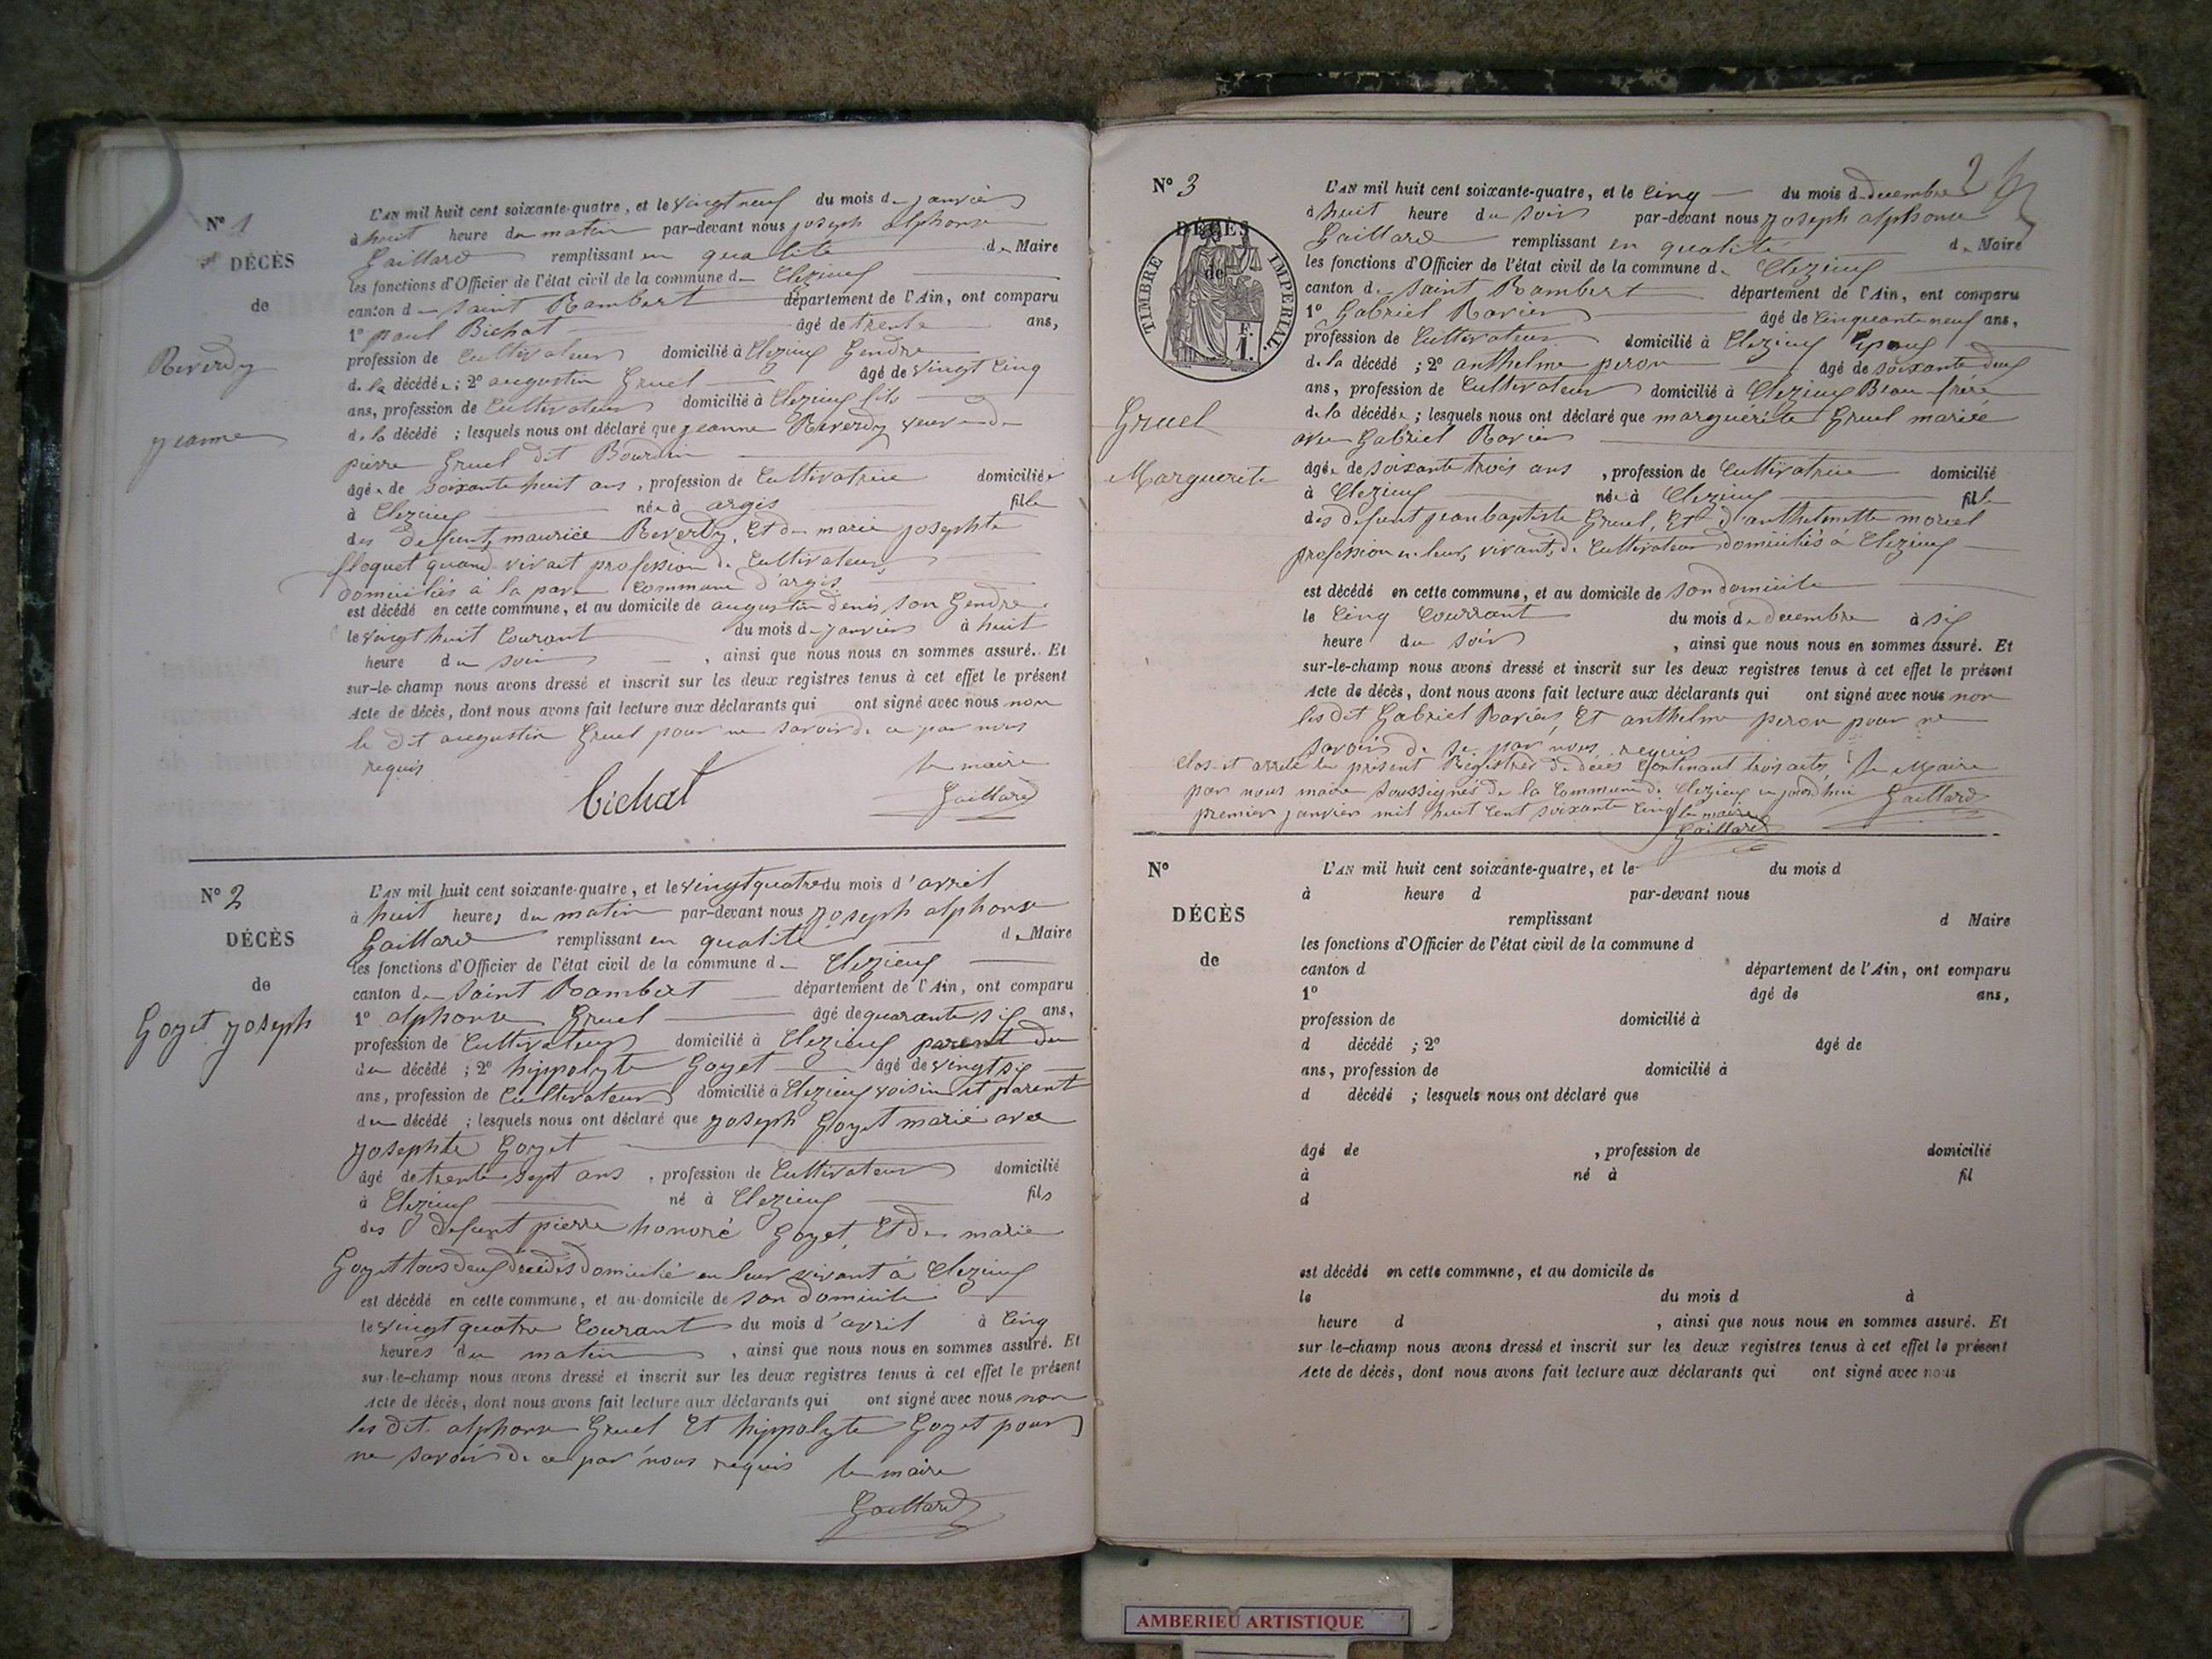 N° 1
DÉCÈS
de
Reverdy
jeanne
L'AN mil huit cent soixante-quatre, et le vingt neuf du mois de janvier
à huit heure du matin par-devant nous joseph alphonse
Gaillard remplissant en qualité de Maire
les fonctions d'Officier de l'état civil de la commune de Clezieuf
canton de Saint Rambert département de l'Ain, ont comparu
1° paul Bichat âgé de trente ans,
profession de Cultivateur domicilié à Clezieuf Gendre
de la décédée ; 2° augustin Gruel âgé de vingt Cinq
ans, profession de Cultivateur domicilié à Clezieuf fils
de la décédé ; lesquels nous ont déclaré que jeanne Reverdy veuve de
pierre Gruel dit Bourdin
âgée de soixante huit ans, profession de Cultivatrice domiciliée
à Clezieuf née à argis fille
des defunts mauriće Reverdy, Et de marie josephte
floquet quand vivait profession de Cultivateurs
domiciliés à la pare Commune d'argis
est décédé en cette commune, et au domicile de augustin denis son Gendre
le vingt huit Courant du mois de janvier à huit
heure du soir , ainsi que nous nous en sommes assuré. Et
sur-le-champ nous avons dressé et inscrit sur les deux registres tenus à cet effet le présent
Acte de décès, dont nous avons fait lecture aux déclarants qui ont signé avec nous non
le dit augustin Gruel pour ne savoir de ce par nous
requis le maire
bichat Gaillard
N° 2
DÉCÈS
de
Goyet joseph
L'AN mil huit cent soixante-quatre, et le vingt quatre du mois d'avril
à huit heures du matin par-devant nous joseph alphonse
Gaillard remplissant en qualité de Maire
les fonctions d'Officier de l'état civil de la commune de Clezieuf
canton de Saint Rambert département de l'Ain, ont comparu
1° alphonse Gruel âgé de quarante sif ans,
profession de Cultivateur domicilié à Clezieuf parent du
du décédé ; 2° hippolyte Goyet âgé de vingt sif
ans, profession de Cultivateur domicilié à Clezieuf voisin et parent
du décédé ; lesquels nous ont déclaré que joseph Goyet marié avec
josephte Goyet
âgé de trente sept ans , profession de Cultivateur domicilié
à Clezieuf né à Clezieuf fils
des defunt pierre honoré Goyet, Et de marie
Goyet tous deuf décédés domicilié en leur vivant à Clezieuf
est décédé en cette commune, et au domicile de son domicile
le vingt quatre Courant du mois d'avril à Cinq
heures du matin , ainsi que nous nous en sommes assuré. Et
sur-le-champ nous avons dressé et inscrit sur les deux registres tenus à cet effet le présent
Acte de décès, dont nous avons fait lecture aux déclarants qui ont signé avec nous non
les dit alphonse Gruel Et hippolyte Goyet pour
ne savoir de ce par nous requis le maire
Gaillard
2
N° 3
DÉCÈS
de
TIMBRE IMPERIAL
F.
1.
Gruel
Marguerite
L'AN mil huit cent soixante-quatre, et le Cinq du mois de decembre
à huit heure du soir par-devant nous joseph alphonse
Gaillard remplissant en qualité de Maire
les fonctions d'Officier de l'état civil de la commune de Clezieuf
canton de Saint Rambert département de l'Ain, ont comparu
1° Gabriel Ravier âgé de Cinquante neuf ans,
profession de Cultivateur domicilié à Clezieuf Epouf
de la décédé ; 2° anthelme peron âgé de soixante deuf
ans, profession de Cultivateur domicilié à Clezieuf Beau-frère
de la décédée ; lesquels nous ont déclaré que marguerite Gruel mariée
avec Gabriel Ravier
âgée de soixante trois ans , profession de Cultivatrice domicilié
à Clezieuf née à Clezieuf fille
des defunt jean baptiste Gruel, Et d'anthelmette morel
profession en leurs vivants de Cultivateur domiciliés à Clezieuf
est décédé en cette commune, et au domicile de son domicile
le Cinq Courrant du mois de decembre à sif
heure du soir , ainsi que nous nous en sommes assuré. Et
sur-le-champ nous avons dressé et inscrit sur les deux registres tenus à cet effet le présent
Acte de décès, dont nous avons fait lecture aux déclarants qui ont signé avec nous non
les dit Gabriel Ravier, Et anthelme peron pour ne
savoir de se par nous requis
Clos et arrêté le présent Registre de décès Contenant trois actes, le Maire
par nous maire soussignés de la Commune de Clezieuf ce jourd'hui Gaillard
premier janvier mil huit Cent soixante Cinq le maire
Gaillard
N°
DÉCÈS
de
L'AN mil huit cent soixante-quatre, et le du mois d
à heure d par-devant nous
remplissant d Maire
les fonctions d'Officier de l'état civil de la commune d
canton d département de l'Ain, ont comparu
1° âgé de ans,
profession de domicilié à
d décédé ; 2° âgé de
ans, profession de domicilié à
d décédé ; lesquels nous ont déclaré que
âgé de , profession de domicilié
à né à fil
d
est décédé en cette commune, et au domicile de
le du mois d à
heure d , ainsi que nous nous en sommes assuré. Et
sur-le-champ nous avons dressé et inscrit sur les deux registres tenus à cet effet le présent
Acte de décès, dont nous avons fait lecture aux déclarants qui ont signé avec nous
AMBERIEU ARTISTIQUE